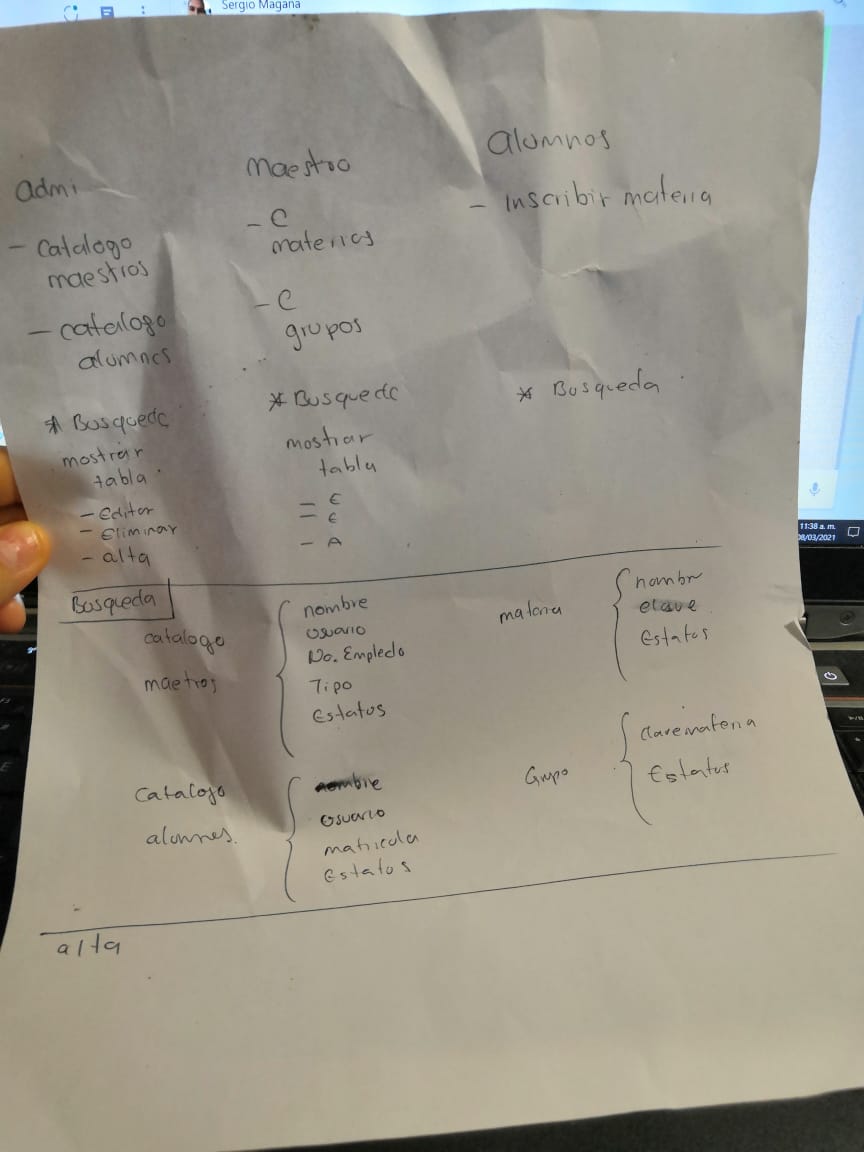 Sergio Magaña
admi
- Catalogo
maestros
- catalogo
alumnos
* Busqueda
mostrar
tabla
- Editar
- Eliminar
- alta
maestro
- C
materias
- C
grupos
* Busqueda
mostrar
tabla
= E
= E
- A
alumnos
- Inscribir materia
* Busqueda
11:38 a. m.
08/03/2021
Busqueda
catalogo
maetros
nombre
usuario
No. Empledo
Tipo
Estatus
materia
nombr
clave
Estatus
Catalogo
alumnes.
nombre
usuario
matricula
Estatus
Grupo
Clavemateria
Estatus
alta